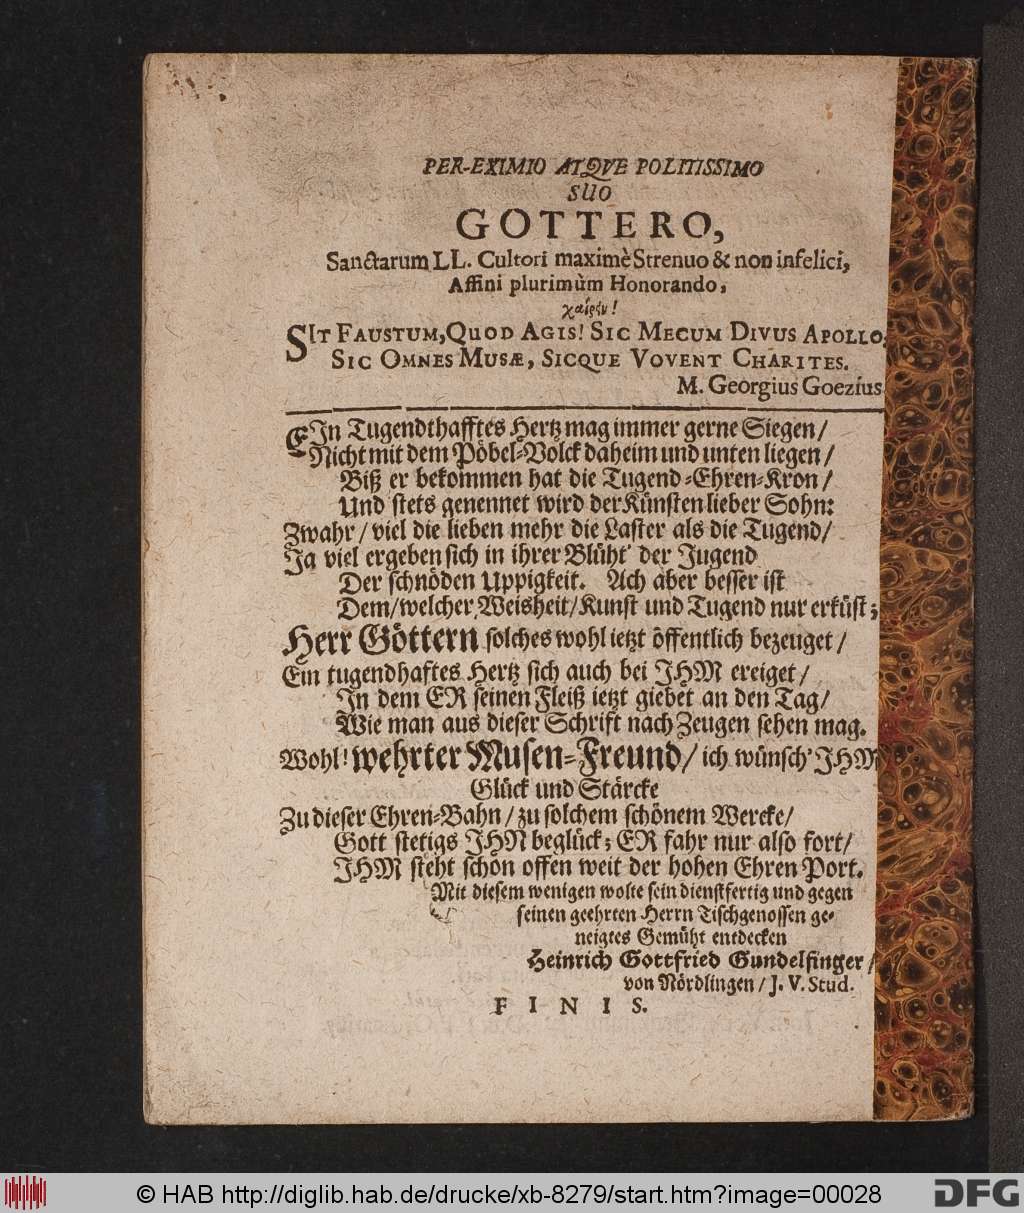 PER-EXIMIO ATQVE POLITISSIMO
SUO
GOTTERO,
Sanctarum LL. Cultori maximè Strenuo & non infelici,
Affini plurimùm Honorando,
χαίρειν!
SIT FAUSTUM, QUOD AGIS! SIC MECUM DIVUS APOLLO,
SIC OMNES MUSÆ, SICQUE VOVENT CHARITES.
M. Georgius Goezius
EIn Tugendthafftes Hertz mag immer gerne Siegen/
Nicht mit dem Pöbel-Volck daheim und unten liegen/
Biß er bekommen hat die Tugend-Ehren-Kron/
Und stets genennet wird der Künsten lieber Sohn:
Zwahr/ viel die lieben mehr die Laster als die Tugend/
Ja viel ergeben sich in ihrer Blüht' der Jugend
Der schnöden Uppigkeit. Ach aber besser ist
Dem/ welcher Weisheit/ Kunst und Tugend nur erküst;
Herr Göttern solches wohl ietzt öffentlich bezeuget/
Ein tugendhaftes Hertz sich auch bei JHM ereiget/
In dem ER seinen Fleiß ietzt giebet an den Tag/
Wie man aus dieser Schrift nach Zeugen sehen mag.
Wohl! wehrter Musen-Freund/ ich wünsch' JHM
Glück und Stärcke
Zu dieser Ehren-Bahn/ zu solchem schönem Wercke/
Gott stetigs JHN beglück; ER fahr nur also fort/
JHM steht schon offen weit der hohen Ehren Port.
Mit diesem wenigen wolte sein dienstfertig und gegen
seinen geehrten Herrn Tischgenossen ge-
neigtes Gemüht entdecken
Heinrich Gottfried Gundelfinger/
von Nördlingen/ J. V. Stud.
FINIS.
© HAB http://diglib.hab.de/drucke/xb-8279/start.htm?image=00028
DFG